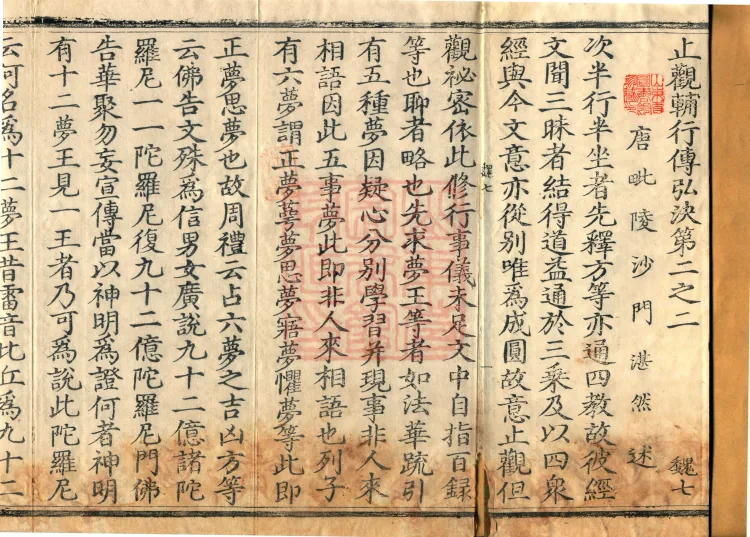 止觀輔行傳弘決第二之二
魏七
唐毗陵沙門湛然述
次半行半坐者先釋方等亦通四教故彼經
文聞三昧者結得道益通於三乘及以四衆
經與今文意亦從別唯爲成圓故意止觀但
魏七
觀祕密依此修行事儀未足文中自指百録
等也聊者略也先求夢王等者如法華疏引
有五種夢因疑心分別學習并現事非人來
相語因此五事夢此即非人來相語也列子
有六夢謂正夢蕚夢思夢寤夢懼夢等此即
正夢思夢也故周禮云占六夢之吉凶方等
云佛告文殊爲信男女廣說九十二億諸陀
羅尼一一陀羅尼復九十二億陀羅尼門佛
告華聚勿妄宣傳當以神明爲證何者神明
有十二夢王見一王者乃可爲說此陀羅尼
云何名爲十二夢王昔雷音比丘爲九十二